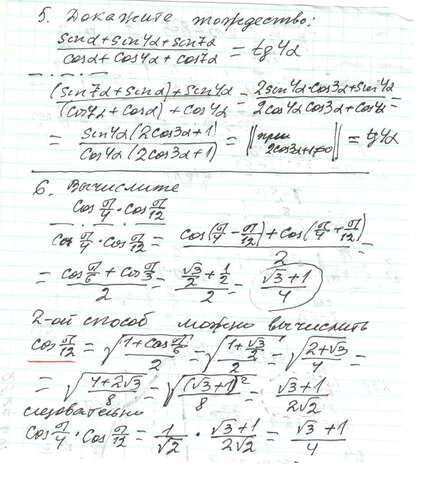 5. Докажите тождество:
(sinα + sin4α + sin7α)/(cosα + cos4α + cos7α) = tg4α
((sin7α + sinα) + sin4α)/((cos7α + cosα) + cos4α) = (2sin4α·cos3α + sin4α)/(2cos4α cos3α + cos4α) =
= (sin4α(2cos3α + 1))/(cos4α(2cos3α + 1)) = ‖при 2cos3α+1≠0‖ = tg4α
6. Вычислите
cos π/4 · cos π/12
cos π/4 · cos π/12 = (cos(π/4 − π/12) + cos(π/4 + π/12))/2 =
= (cos π/6 + cos π/3)/2 = (√3/2 + 1/2)/2 = (√3 + 1)/4
2-ой способ можно вычислить
cos π/12 = √((1 + cos π/6)/2) = √((1 + √3/2)/2) = √((2 + √3)/4) =
= √((4 + 2√3)/8) = √((√3 + 1)²/8) = (√3 + 1)/(2√2)
следовательно
cos π/4 · cos π/12 = 1/√2 · (√3 + 1)/(2√2) = (√3 + 1)/4